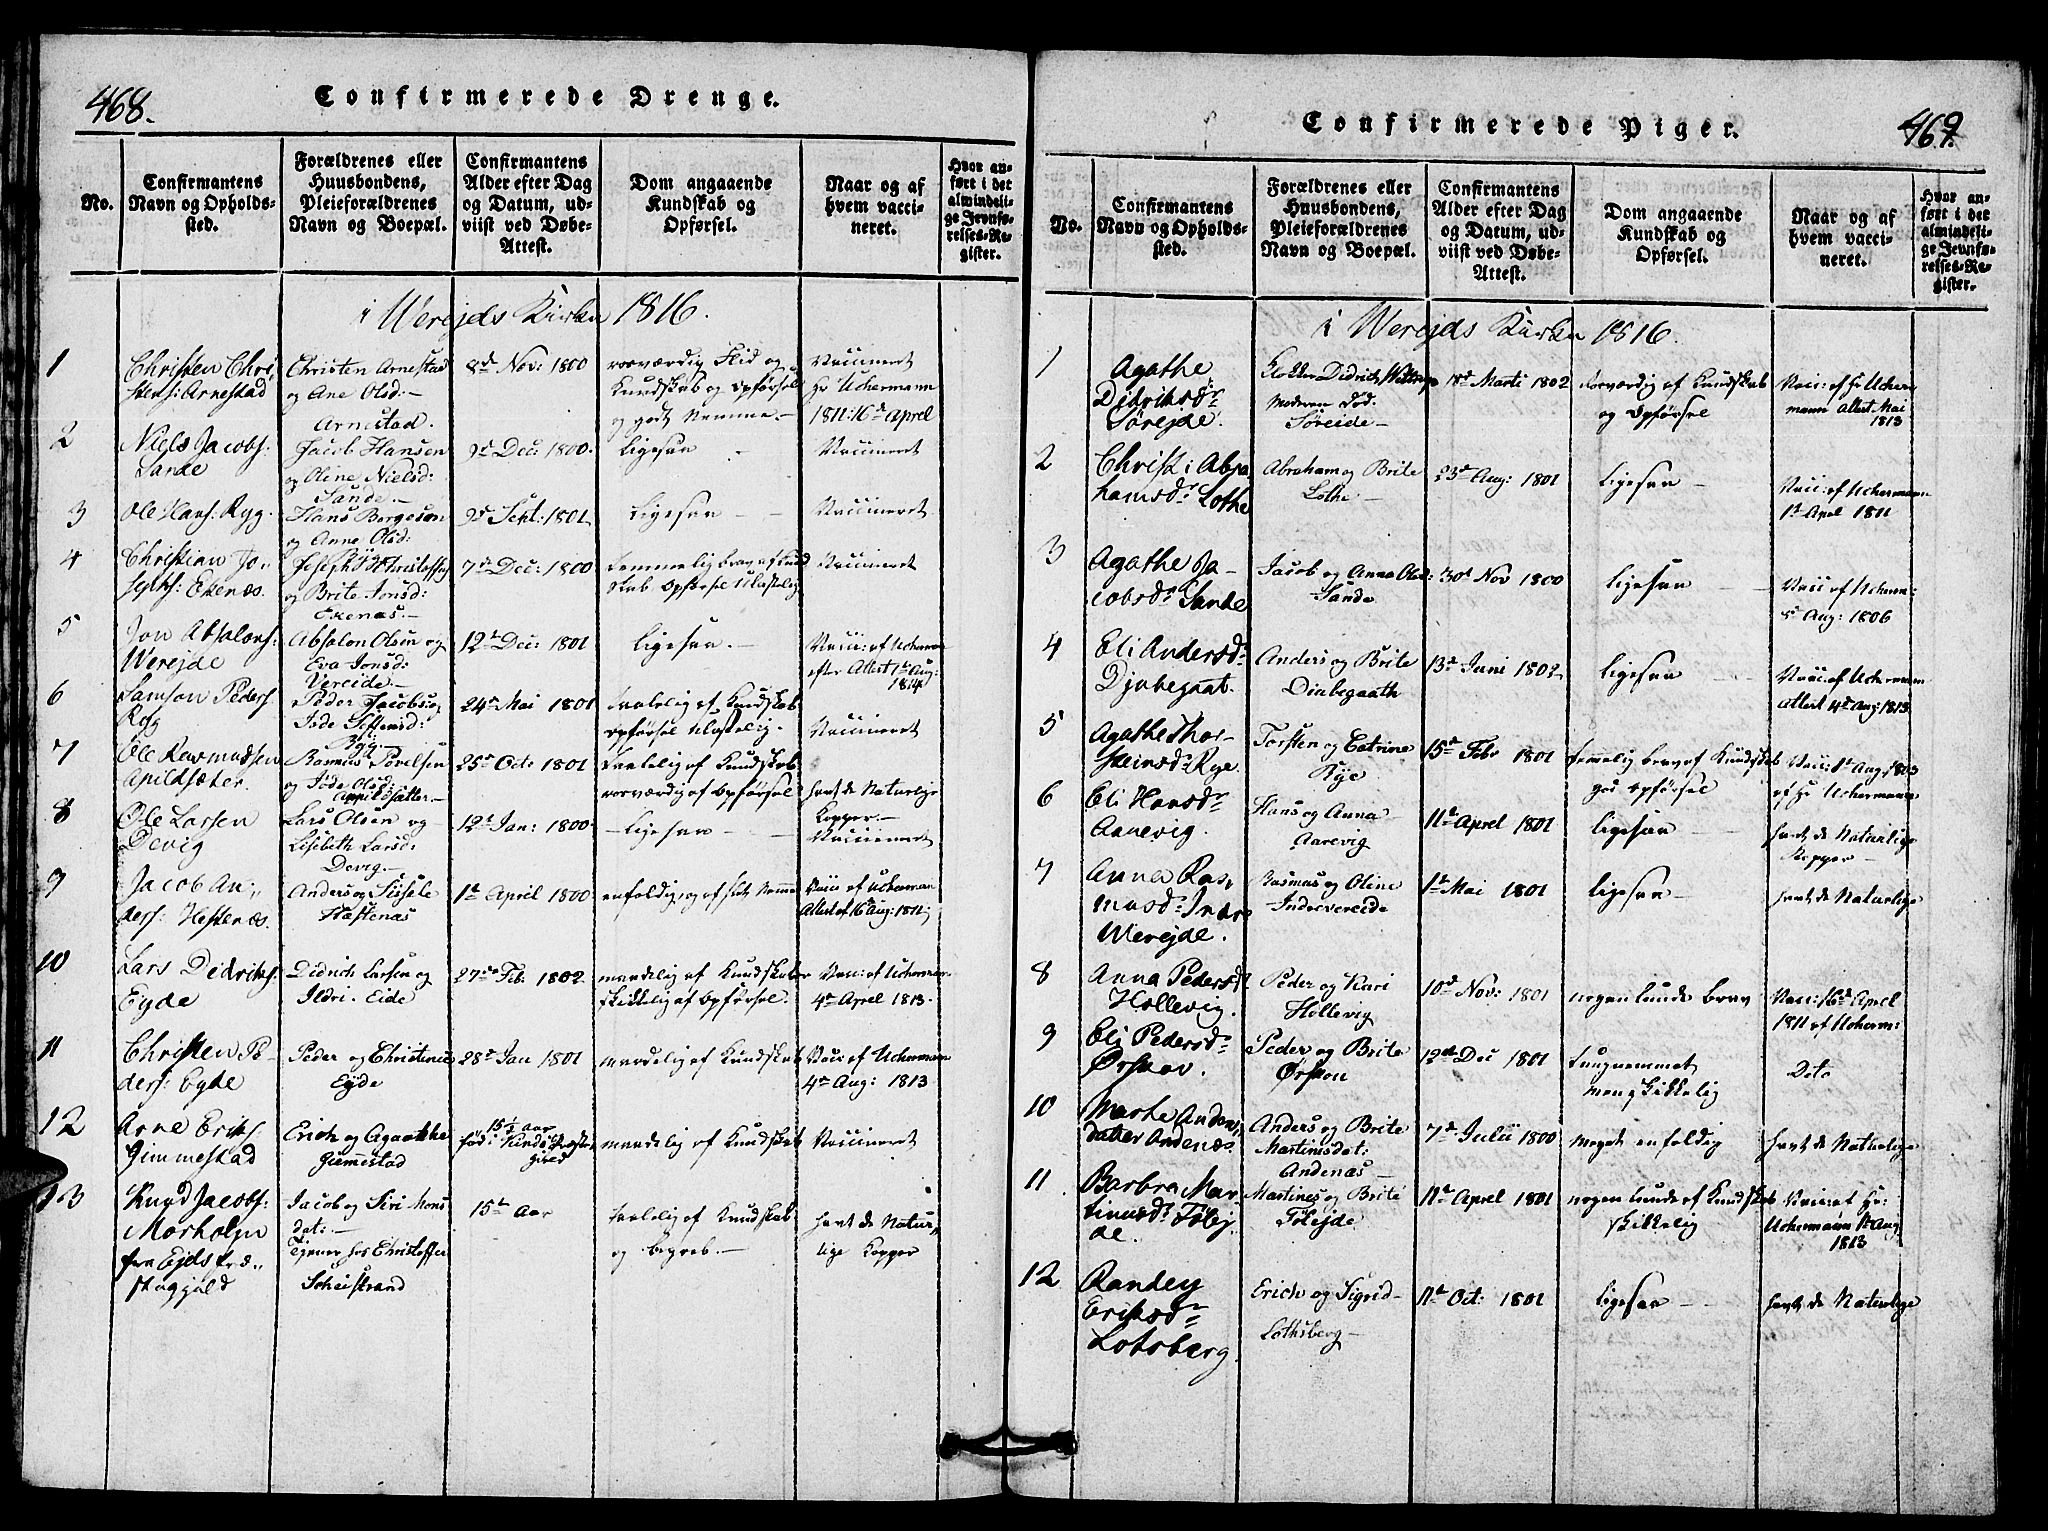 468.
Confirmerede Drenge.
No.
Confirmantens
Navn og Opholds-
sted.
Forældrenes eller
Huusbondens,
Pleieforældrenes
Navn og Boepæl.
Confirmantens
Alder efter Dag
og Datum, ud-
viist ved Døbe-
Attest.
Dom angaaende
Kundskab og
Opførsel.
Naar og af
hvem vacci-
neret.
Hvor an-
ført i det
almindeli-
ge Jevnfø-
relses-Re-
gister.
i Werejds Kirke 1816.
1
Christen Chri
stens: Arnestad
Christen Arnestad
og Ane Olsd:-
Arnestad.
8d Nov: 1800
roesværdig Flid og
Kundskab og Opførsel
og godt Nemme.-
Vaccineret
Uchermann
1811: 16d Aprel
2
Niels Jacobs:
Sande
Jacob Hansen
og Oline Nielsd:
Sande.-
9d Dec: 1800.
Ligesaa
Vaccineret
3
Ole Hans: Ryg.
Hans Borgeson
og Anne Olsd:
Ryg
9d Sept: 1801
Ligesaa
Vaccineret
4
Christian Jo-
sephs: Exenæs.
Joseph Christoffers
og Brite Jonsd:
Exenæs.-
7de Dec: 1800
temmelig brav af Kund
skab Opførsel Ulastelig
Vaccineret
5
Jon Absalons:
Werejde
Absalon Olsen og
Eva Jonsd:
Vereide.-
12t Dec: 1801
Ligesaa.-
Vacci: af Ucherman
efter Attest 1t Aug:
1814
6
Samson Peders
Ryg
Peder Jacobs: og
Ryg.-
24de Mai 1801
taalelig af Kundskab
Opførsel Ulastelig.
Vaccineret
7
Ole Rasmussen
Apildsæter.
Rasmus Povelsen
og Jøde Olsd:
Appildsætter.-
25d Oct: 1801
taalelig af Kundskab
roesværdig af Opførsel
havt de Naturlige
Kopper.-
8
Ole Larsen
Devig
Lars Olsen og
Lisebeth Larsd:
Devig.-
12t Jan: 1800.
-Ligesaa-
Vaccineret
9
Jacob An-
ders: Hestenæs.
Anders og Sissele
Hæstenæs
1t April 1800
enfoldig, og af slet Nemme
Vacci af Ucherman
Attest af 16d Aug: 1811
10
Lars Didriks.
Eyde
Didrich Larsen og
Ildri. Eide
27de Feb. 1802.
maadelig af Kundskab
skikkelig af Opførsel.
Vacc: af Ucherman
4de Aprel 1813.
11
Christen Pe-
ders: Eyde
Peder og Christence
Eyde
28de Jan 1801
maadelig af Kundskab
Vacc: af Uchermann
4de Aug: 1813
12
Arne Eriks.
Gimmestad
Erich og Agaathe
Giemestad
15½ aar
født i Kinds Præste
gield
maadelig af Kundskab
Vaccineret
13
Knud Jacobs:
Morholm
fra Ejds Præ-
stegjæld
Jacob og Siri Mons
dat:-
Tjener hos Christoffer
15t Aar
taalelig af Kundskab
og begreb.-
havt de Natur-
lige Kopper
469.
Confirmerede Piger.
No.
Confirmantens
Navn og Opholds-
sted.
Forældrenes eller
Huusbondens,
Pleieforældrenes
Navn og Boepæl.
Confirmantens
Alder efter Dag
og Datum, ud-
viist ved Døbe-
Attest.
Dom angaaende
Kundskab og
Opførsel.
Naar og af
hvem vacci-
neret.
Hvor an-
ført i det
almindeli-
ge Jevnfø-
relses-Re-
gister.
i Werejds Kirke 1816.
1
Agathe
Didriksdr
Sørejde.
Klokker Didrich
Moderen Død.
Søreide-
18d Marti 1802
roesværdig af Kundskab
og Opførsel
Vacc: af Hr Ucher
mann Attest Mai
1813
2
Christi Abra
hamsdr Lothe
Abraham og Brite
Lothe.-
23d Aug: 1801
Ligesaa
Vacc: af Uchermann
1t Aprel 1811
3
Agathe Ja-
cobsdr Sande
Jacob og Anna Olsd:
Sande
30d Nov 1800
Ligesaa
Vacc af Ucherm:
5t Aug: 1806
4
Eli Andersdr
Djubegaat.
Anders og Brite
Diubegaath
13de Juni 1802
Ligesaa
Vacc: af Uchermann
Attest 4d Aug: 1813.
5
Agathe Thor-
steinsdr Rye.
Torsten og Catrine
Rye
15d Febr 1801
temmelig brav af Kundskab
god Opførsel
Vacc: 1t Aug: 1803
af Hr Uchermann
6
Eli Hansdr
Aarevig.
Hans og Anna
Aarevig
11t Aprel 1801
Ligesaa
havt de Naturlige
Kopper-
7
Anna Ras-
musdr Indre
Werejde.
Rasmus og Oline
Indrevereide
1t Mai 1801
Ligesaa
havt de Naturlige
8
Anna Pedersdr
Hollevig.
Peder og Kari
Hollevig
10d Nov: 1801
nogen lunde brav
Vacc: 16d Aprel
1811 af Ucherm:
9
Eli Pedersdr
Ørskov.
Peder og Brite
Ørskou
12de Dec 1801
Tungnemmet
men skikkelig
Dito
10
Marte Anders
datter Andenæs.
Anders og Brite
Martinisdat:
Andenæs-
7de Julii 1800
meget enfoldig
havt de Naturlige
11
Barbra Mar-
tinusdr Følej
de.
Martines og Brite
Følejde
11t Aprel 1801
nogen lunde af Kundskab
skikkelig
Vacc: af Hr:
Uchermann 1t Aug
1813
12
Randey
Eriksdr
Lotsberg.
Erich og Sigrid-
Lothsberg-
11t Oct: 1801
Ligesaa-
havt de Naturlige